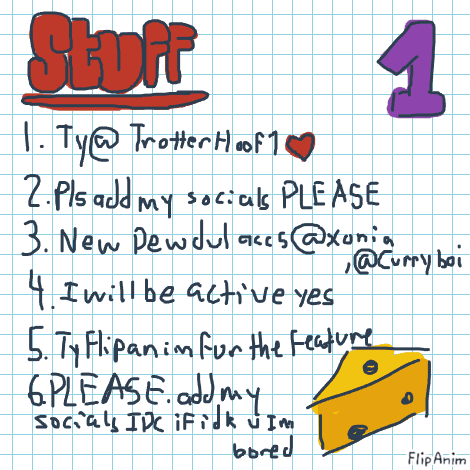 Stuff 1
1. Ty@ TrotterHoof1
2. Pls add my socials PLEASE
3. New Dewdul accs @xonia
, @Curryboi
4. I will be active yes
5. Ty Flipanim fur the Feature
6. PLEASE. add my
socials IDC iF idk u Im
bored
FlipAnim